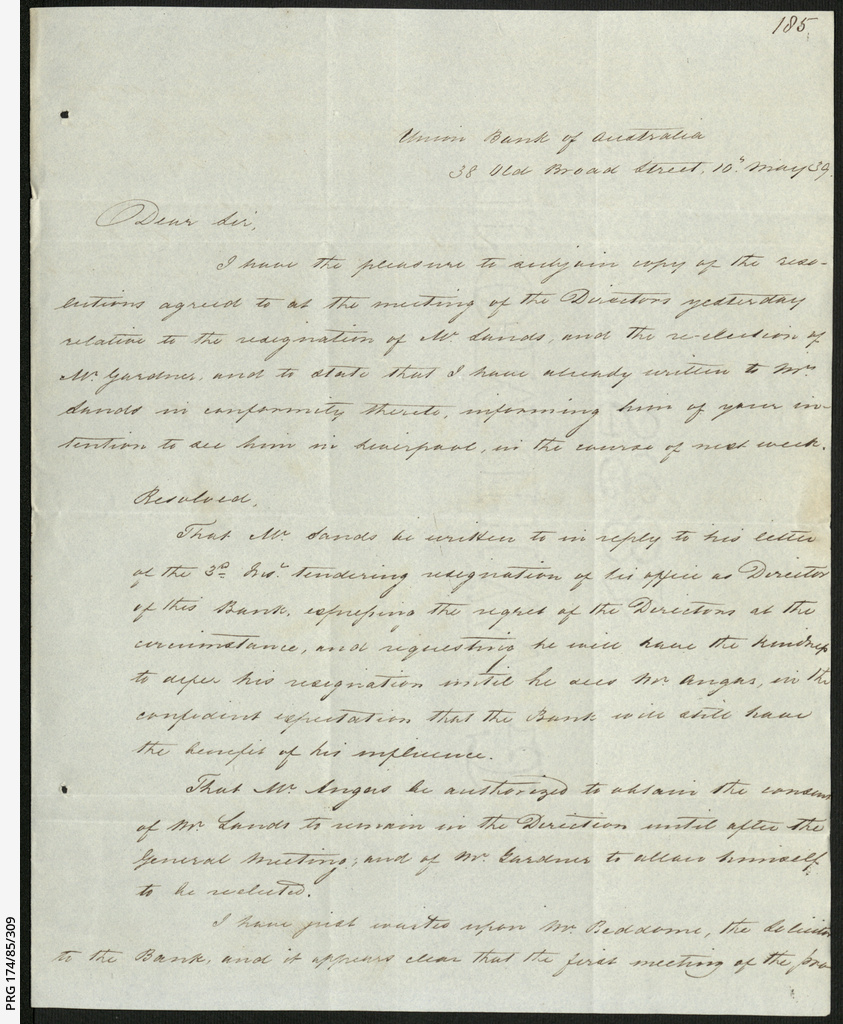 185
Union Bank of Australia
38 Old Broad Street, 10th May 39.
Dear Sir,
I have the pleasure to subjoin copy of the reso-
lutions agreed to at the meeting of the Directors yesterday
relative to the resignation of Mr. Sands, and the re-election of
Mr. Gardner, and to state that I have already written to Mr.
Sands in conformity thereto, informing him of your in-
tention to see him in Liverpool, in the course of next week.
Resolved,
That Mr. Sands be written to in reply to his letter
of the 3rd Inst. tendering resignation of his office as Director
of this Bank, expressing the regret of the Directors at the
circumstance, and requesting he will have the kindness
to defer his resignation until he sees Mr. Angas, in the
confident expectation that the Bank will still have
the benefit of his influence.
That Mr. Angas be authorized to obtain the consent
of Mr. Sands to remain in the Direction until after the
General Meeting; and of Mr. Gardner to allow himself
to be reelected.
I have just waited upon Mr. Beddome, the Solicitor
to the Bank, and it appears clear that the first meeting of the pro
PRG 174/85/309